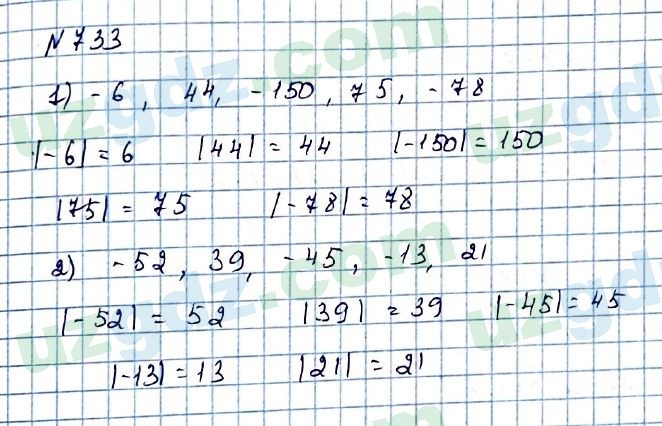 N 733
1) -6, 44, -150, 75, -78
|-6| = 6 |44| = 44 |-150| = 150
|75| = 75 |-78| = 78
2) -52, 39, -45, -13, 21
|-52| = 52 |39| = 39 |-45| = 45
|-13| = 13 |21| = 21
uzgdz.com